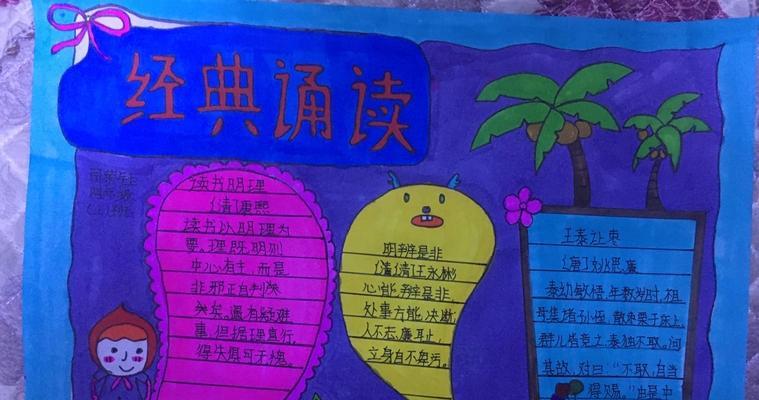 经典诵读
读书明理
〔清〕康熙
读书以明理为
要。理既明则
中心有主，而是
非邪正自判然
矣。遇有疑难
事，但据理直行，
得失俱可无愧。
明辨是非
〔清〕王永彬
心能辨是非，
处事方能决断，
人不忘廉耻，
立身自不卑污。
王泰让枣
〔唐〕
泰幼敏悟，年数岁时，祖
母集诸孙侄，散枣栗于床上，
群儿皆竞之，泰独不取。问
其故，对曰："不取，自当
得赐。"由是中